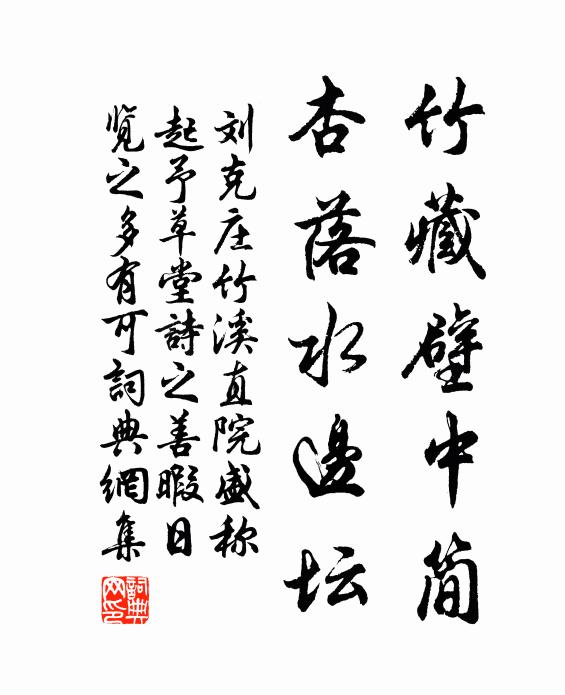 竹藏壁中简
杏落水邊坛
刘克庄竹溪直院盛称
起予草堂詩之善暇日
览之多有可詞典網集
詞典网印